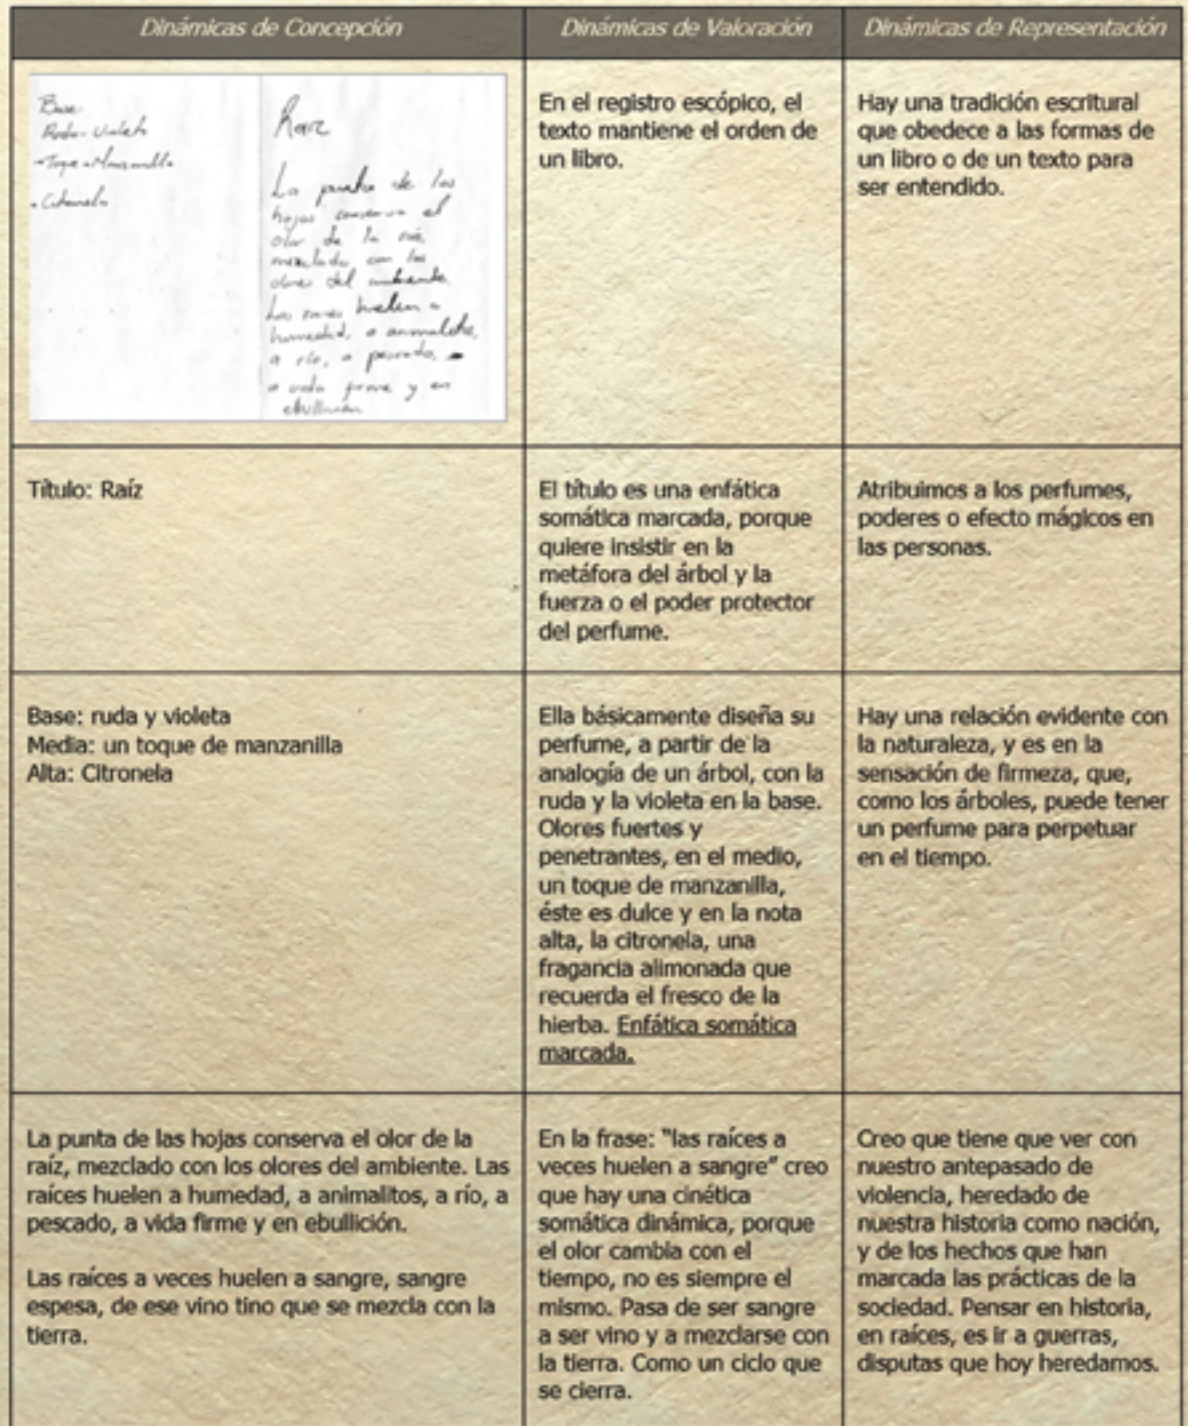 Dinámicas de Concepción
Dinámicas de Valoración
Dinámicas de Representación
Base
Ruda - Violeta
- Toque - Manzanilla
- Citronela
Raíz
La punta de las
hojas conserva el
olor de la raíz,
mezclado con los
olores del ambiente.
Las raíces huelen a
humedad, a animalitos,
a río, a pescado,
a vida firme y en
ebullición
En el registro escópico, el
texto mantiene el orden de
un libro.
Hay una tradición escritural
que obedece a las formas de
un libro o de un texto para
ser entendido.
Título: Raíz
El título es una enfática
somática marcada, porque
quiere insistir en la
metáfora del árbol y la
fuerza o el poder protector
del perfume.
Atribuimos a los perfumes,
poderes o efecto mágicos en
las personas.
Base: ruda y violeta
Media: un toque de manzanilla
Alta: Citronela
Ella básicamente diseña su
perfume, a partir de la
analogía de un árbol, con la
ruda y la violeta en la base.
Olores fuertes y
penetrantes, en el medio,
un toque de manzanilla,
éste es dulce y en la nota
alta, la citronela, una
fragancia alimonada que
recuerda el fresco de la
hierba. Enfática somática
marcada.
Hay una relación evidente con
la naturaleza, y es en la
sensación de firmeza, que,
como los árboles, puede tener
un perfume para perpetuar
en el tiempo.
La punta de las hojas conserva el olor de la
raíz, mezclado con los olores del ambiente. Las
raíces huelen a humedad, a animalitos, a río, a
pescado, a vida firme y en ebullición.
Las raíces a veces huelen a sangre, sangre
espesa, de ese vino tino que se mezcla con la
tierra.
En la frase: "las raíces a
veces huelen a sangre" creo
que hay una cinética
somática dinámica, porque
el olor cambia con el
tiempo, no es siempre el
mismo. Pasa de ser sangre
a ser vino y a mezclarse con
la tierra. Como un ciclo que
se cierra.
Creo que tiene que ver con
nuestro antepasado de
violencia, heredado de
nuestra historia como nación,
y de los hechos que han
marcada las prácticas de la
sociedad. Pensar en historia,
en raíces, es ir a guerras,
disputas que hoy heredamos.